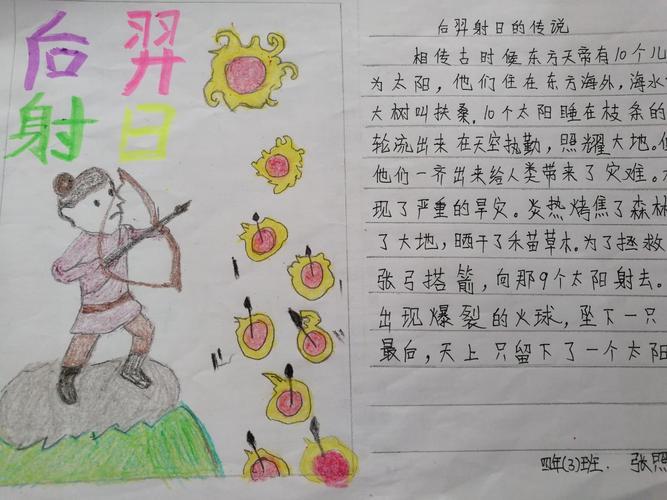 后羿
射日
后羿射日的传说
相传古时候东方天帝有10个儿
为太阳，他们住在东方海外，海水
大树叫扶桑.10个太阳睡在枝条的
轮流出来在天空执勤，照耀大地。但
他们一齐出来给人类带来了灾难。
现了严重的旱灾。炎热烤焦了森林
了大地，晒干了禾苗草木。为了拯救
张弓搭箭，向那9个太阳射去。
出现爆裂的火球，坠下一只
最后，天上只留下了一个太阳
四年(3)班. 张照